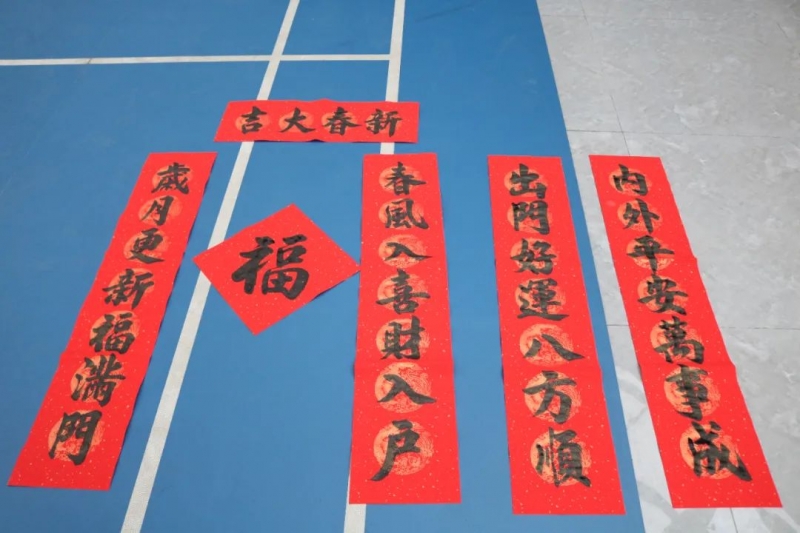 新春大吉
内外平安萬事成
出門好運八方順
春風入喜財入户
福
歲月更新福滿門